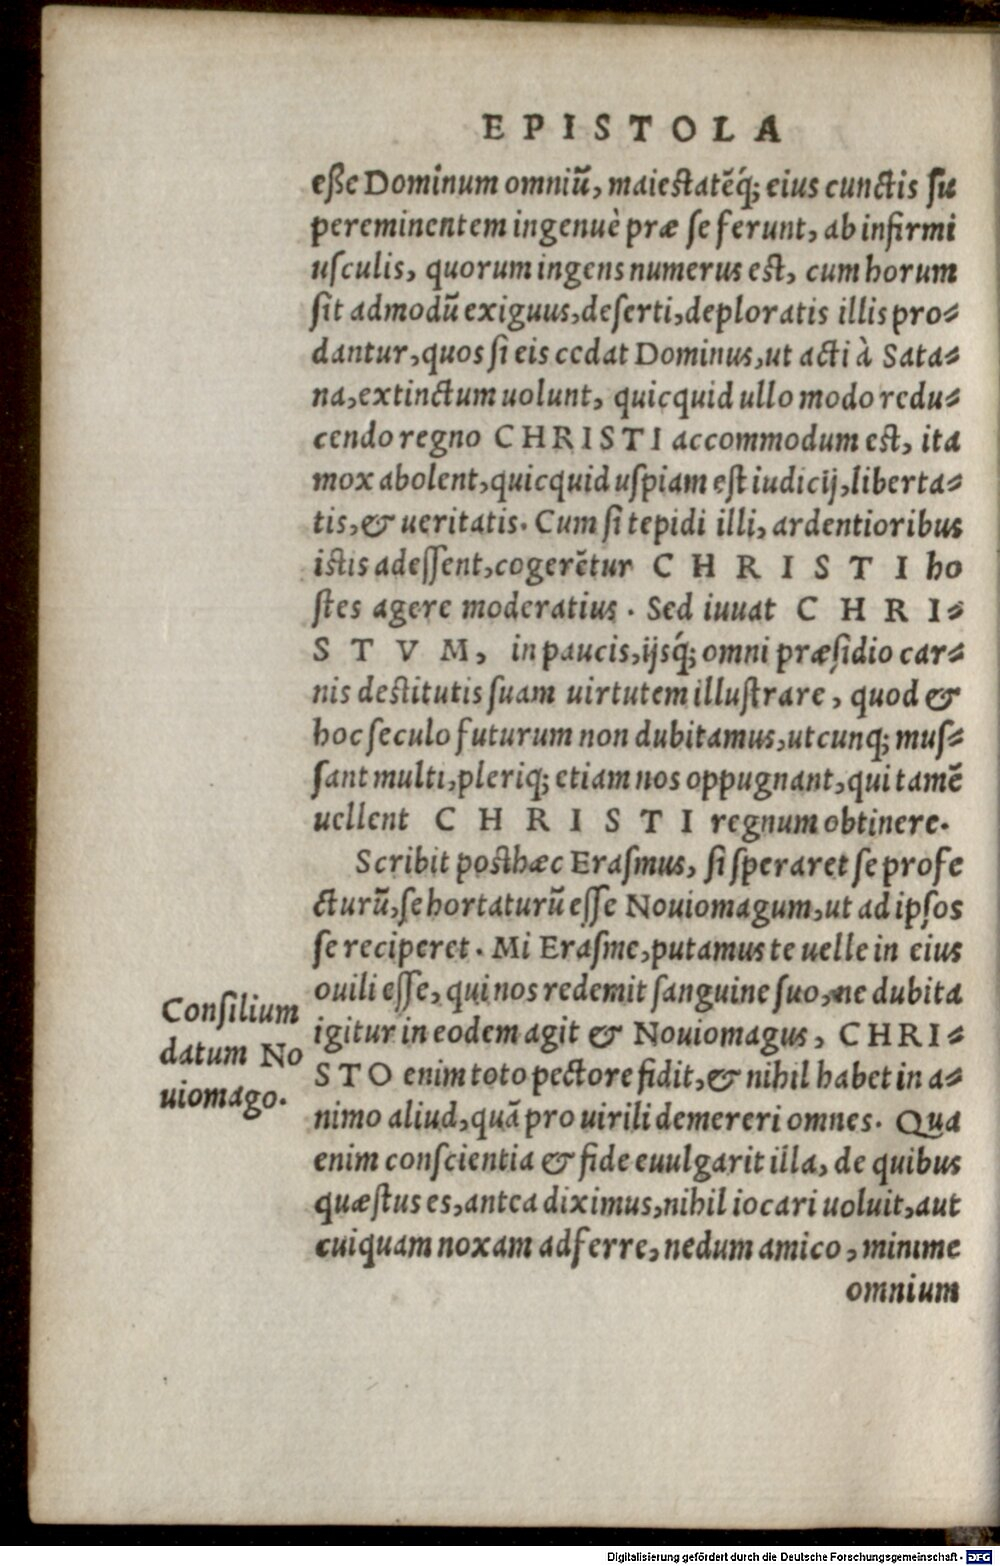 EPISTOLA
eſſe Dominum omniũ, maieſtatẽq́; eius cunctis ſu
pereminentem ingenuè præ ſe ferunt, ab infirmi
uſculis, quorum ingens numerus eſt, cum horum
ſit admodũ exiguus, deſerti, deploratis illis pro⸗
dantur, quos ſi eis cedat Dominus, ut acti à Sata⸗
na, extinctum uolunt, quicquid ullo modo redu⸗
cendo regno CHRISTI accommodum eſt, ita
mox abolent, quicquid uſpiam eſt iudicij, liberta⸗
tis, & ueritatis. Cum ſi tepidi illi, ardentioribus
iſtis adeſſent, cogerẽtur CHRISTI ho
ſtes agere moderatius. Sed iuuat CHRI⸗
STVM, in paucis, ijsq́; omni præſidio car⸗
nis deſtitutis ſuam uirtutem illuſtrare, quod &
hoc ſeculo futurum non dubitamus, utcunq; muſ⸗
ſant multi, pleriq; etiam nos oppugnant, qui tamẽ
uellent CHRISTI regnum obtinere.
Scribit poſthæc Eraſmus, ſi ſperaret ſe profe
cturũ, ſe hortaturũ eſſe Nouiomagum, ut ad ipſos
ſe reciperet. Mi Eraſme, putamus te uelle in eius
ouili eſſe, qui nos redemit ſanguine ſuo, ne dubita
igitur in eodem agit & Nouiomagus, CHRI⸗
STO enim toto pectore fidit, & nihil habet in a⸗
nimo aliud, quã pro uirili demereri omnes. Qua
enim conſcientia & fide euulgarit illa, de quibus
quæſtus es, antea diximus, nihil iocari uoluit, aut
cuiquam noxam adferre, nedum amico, minime
omnium
Conſilium
datum No
uiomago.
Digitalisierung gefördert durch die Deutsche Forschungsgemeinschaft - DFG